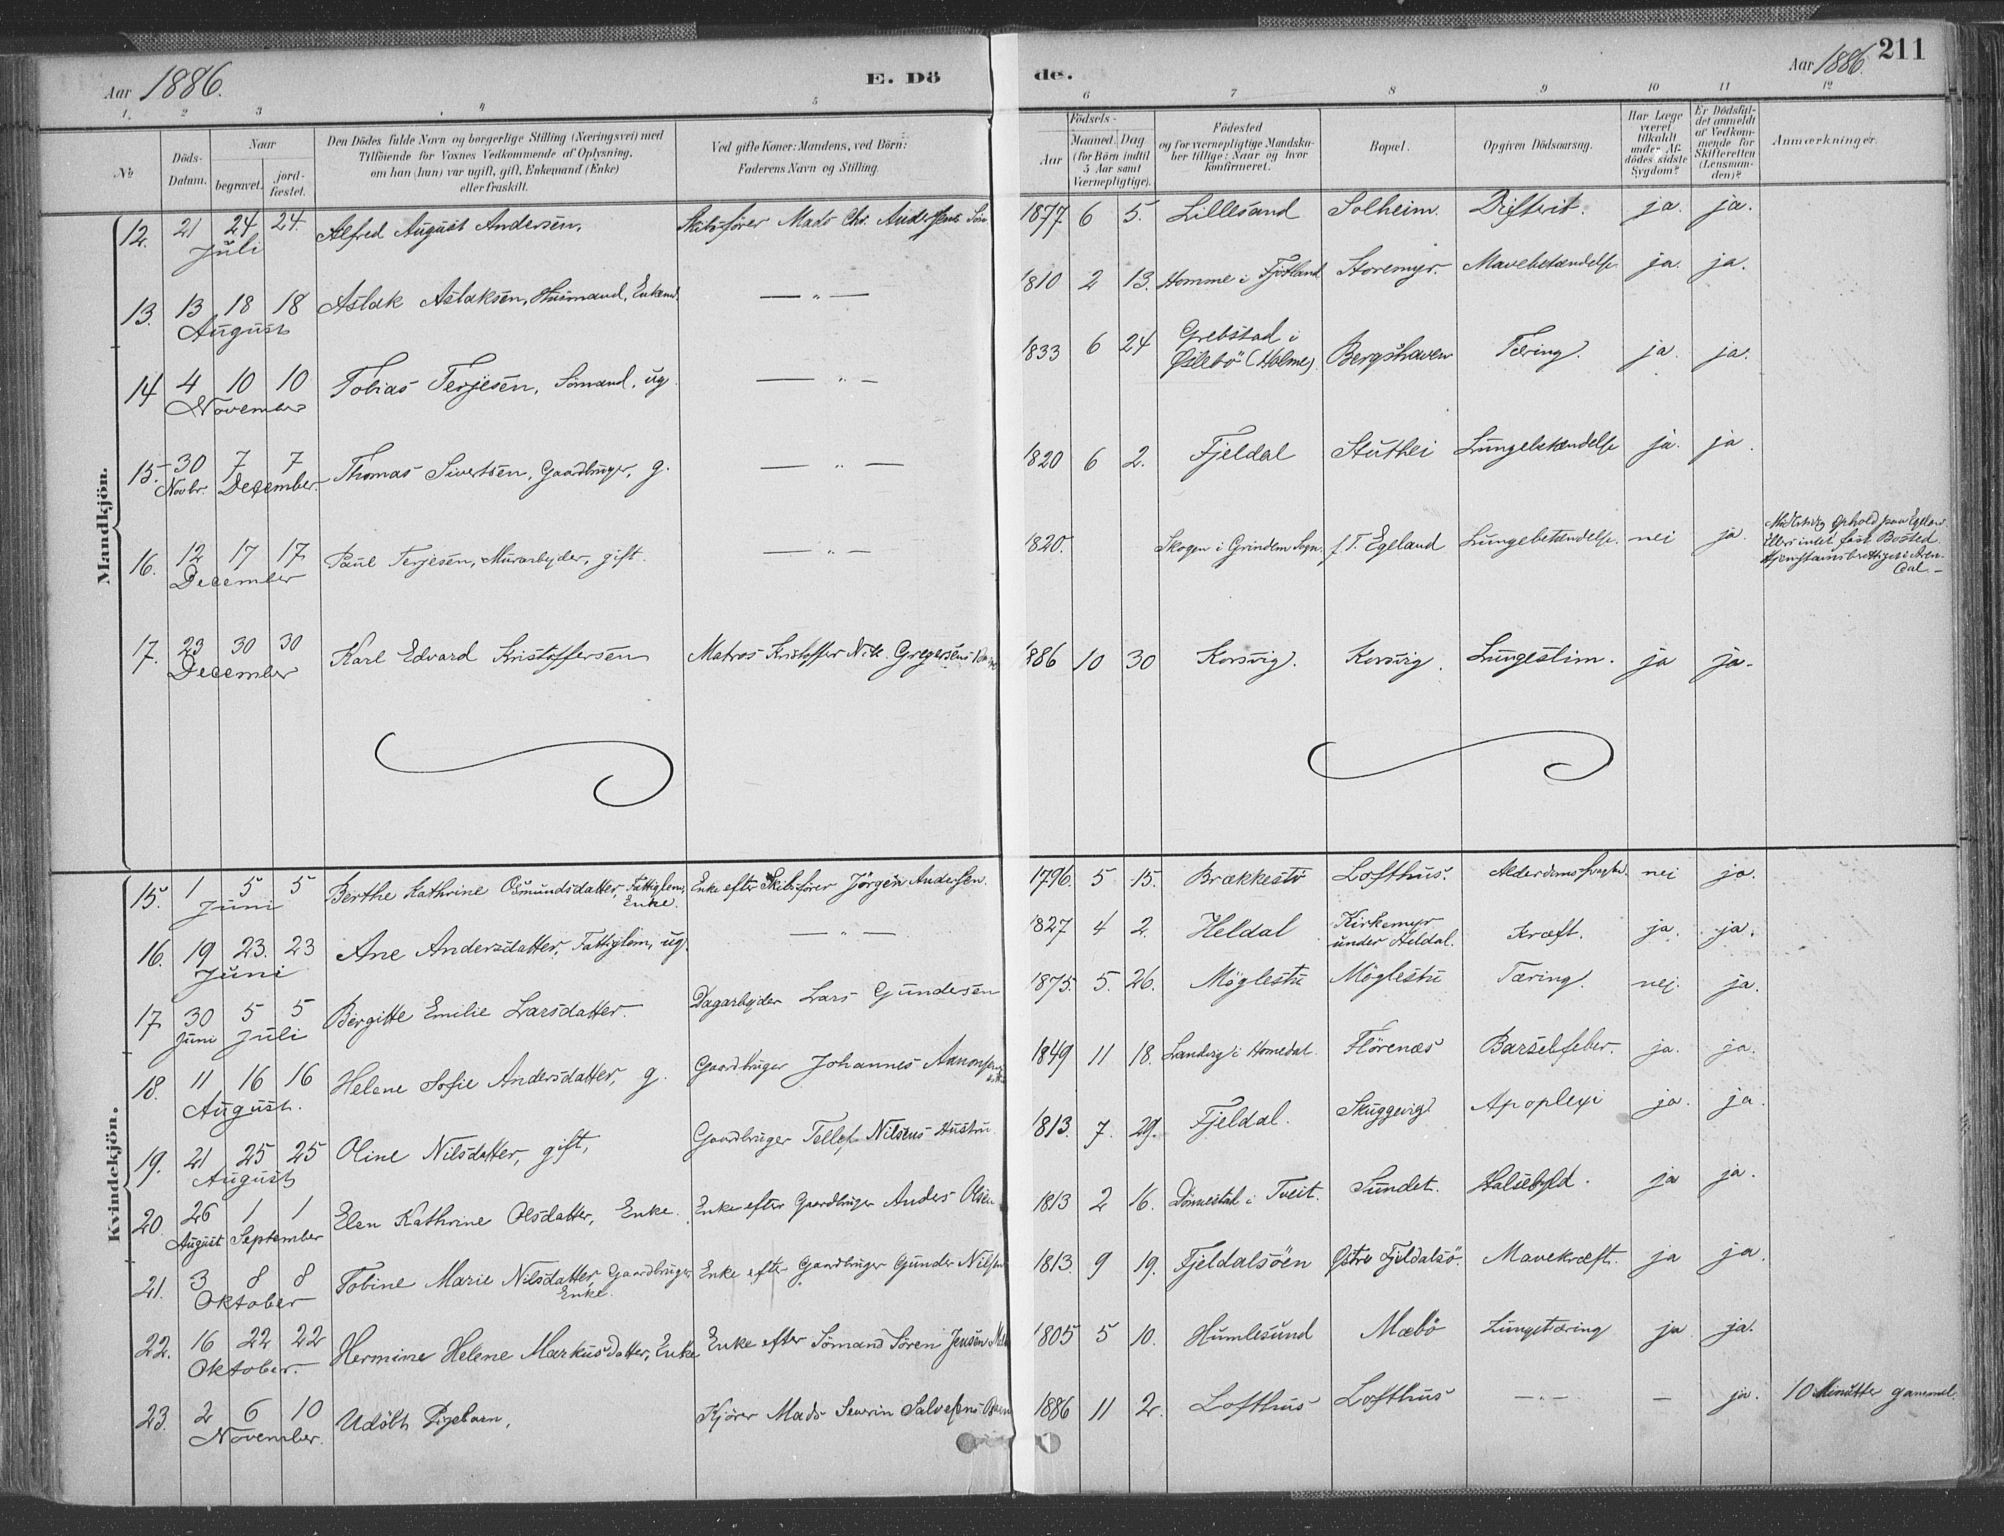 Aar 1886. E. Dö de. Aar 1886. 211
1. 2 3 4 5 6 7 8 9 10 11 12
№ Döds-Datum. Naar begravet. jordfæstet. Den Dödes fulde Navn og borgerlige Stilling (Næringsvei) med Tilföiende for Voxnes Vedkommende af Oplysning, om han (hun) var ugift, gift, Enkemand (Enke) eller fraskilt. Ved gifte Koner: Mandens, ved Börn: Faderens Navn og Stilling. Födsels- Aar Maaned. Dag. (for Börn indtil 5 Aar samt Værnepligtige). Födested og for værnepligtige Mandskaber tillige: Naar og hvor konfirmeret. Bopæl. Opgiven Dödsaarsag. Har Læge været tilkaldt under Afdödes sidste Sygdom? Er Dödsfaldet anmeldt af Vedkommende for Skifteretten (Lensmanden)? Anmærkninger.
Mandkjön.
12. 21 24 24 Juli Alfred August Andersen, Skibsförer Mads Chr. Anderssens Sön 1877. 6 5. Lillesand Solheim. Difterit. ja. ja.
13. 13 18 18 August Aslak Aslaksen, Husmand, Enkem. — " — 1810 2 13. Homme i Fjotland Storemyr. Mavebetændelse ja. ja.
14 4 10 10 November Tobias Terjesen, Sömand, ug. — " — 1833 6 24 Grebstad i Öslebö (Holme) Bergshaven Tæring. ja. ja.
15. 30 Novbr. 7 7 December. Thomas Sivertsen, Gaardbruger, g. — " — 1820 6 2. Fjeldal Stuthei Lungebetændelse ja. ja
16. 12 17 17 December Paul Terjesen, Murarbejder, gift. — " — 1820. Skogen i Grindem Sogn. f. T. Egeland Lungebetændelse. nei ja. Midlertidig Ophold paa Egeland. Ellers intet fast Bosted. Hjemstavnsberettiget i Arendal. –
17. 23 30 30 December Karl Edvard Kristoffersen Matros Kristoffer Nik. Gregersens Barn 1886 10 30 Korsvig. Korsvig. Lungeslim. ja ja.
Kvindekjön.
15. 1 5 5 Juni Berthe Kathrine Osmundsdatter, Fattiglem, Enke. Enke efter Skibsförer Jörgen Anderssen. 1796. 5 15. Brækkestö Lofthus. Alderdomssvaghed. nei ja.
16. 19 23. 23 Juni Ane Andersdatter, Fattiglem, ug. — " — 1827 4 2. Heldal Kirkemyr under Heldal. Kræft. ja. ja.
17. 30 Juni 5 5 Juli Birgitte Emilie Larsdatter. Dagarbejder Lars Gundersen 1875. 5. 26. Möglestu Möglestu Tæring. nei. ja.
18. 11 16 16 August. Helene Sofie Andersdatter, g. Gaardbruger Johannes Aanonsens 1849 11 18. Landvig i Homedal Flörenæs Barselfeber. ja. ja.
19. 21 25 25 August Oline Nilsdatter, gift, Gaardbruger Tellef Nilsens Hustru 1813. 7. 29. Fjeldal. Skuggevig Apoplexi ja. ja.
20. 26 August 1 1 September Elen Kathrine Olsdatter, Enke. Enke efter Gaardbruger Anders Olsen 1813 2 16. Dönnestad i Tveit. Sundet. Halsebyld. ja ja.
21. 3 8 8 Oktober Tobine Marie Nilsdatter, Gaardbruger Enke. Enke efter Gaardbruger Gunder Nilsen 1813. 9 19. Fjeldalsöen Östre Fjeldalsö. Mavekræft. ja ja.
22. 16 22 22 Oktober. Hermine Helene Markusdatter, Enke Enke efter Sömand Sören Jensen 1805 5 10. Humlesund Mæbö Lungetæring ja ja.
23. 2 6 10 November. Udöbt Pigebarn, Kjörer Mads Severin Salvesens Barn 1886 11 2. Lofthus Lofthus — " — — ja. 10 Minutter gammel.